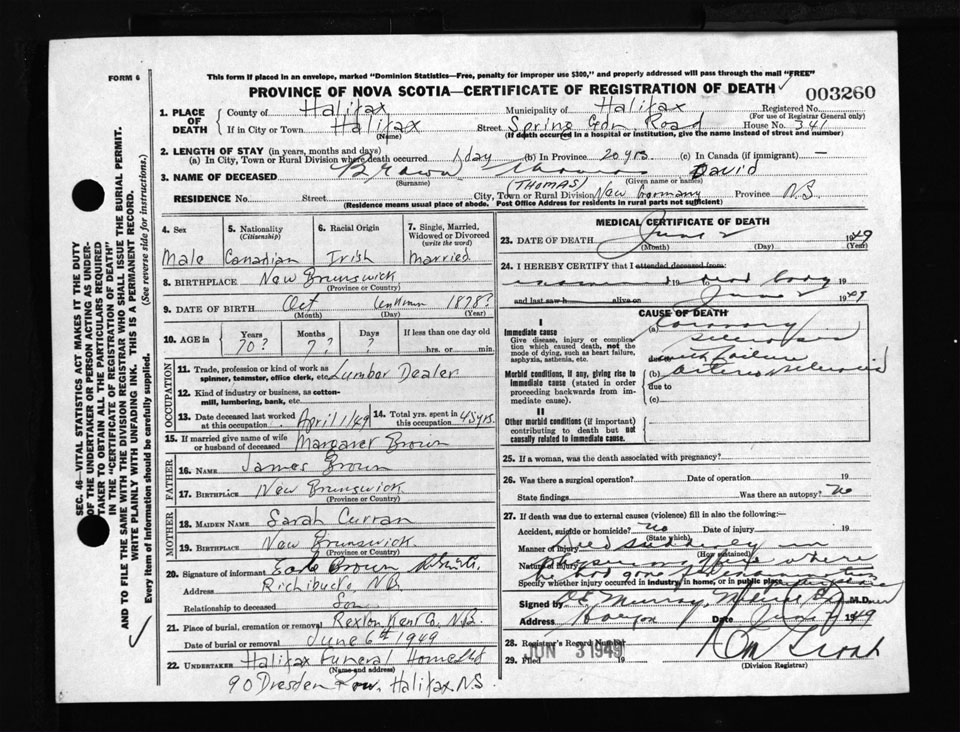 FORM 6
This form if placed in an envelope, marked "Dominion Statistics—Free, penalty for improper use $300," and properly addressed will pass through the mail "FREE"
PROVINCE OF NOVA SCOTIA—CERTIFICATE OF REGISTRATION OF DEATH ✓ 003260
1. PLACE OF DEATH
County of Halifax Municipality of Halifax Registered No.
(For use of Registrar General only)
If in City or Town Halifax Street Spring Gdn Road House No. 341
(Name) (If death occurred in a hospital or institution, give the name instead of street and number)
2. LENGTH OF STAY (in years, months and days)
(a) In City, Town or Rural Division where death occurred 1 day (b) In Province 20 yrs. (c) In Canada (if immigrant) —
3. NAME OF DECEASED Brown Thomas David
(Surname) (THOMAS) (Given name or names)
RESIDENCE No. Street City, Town or Rural Division New Germany Province N.S
(Residence means usual place of abode. Post Office Address for residents in rural parts not sufficient)
4. Sex 5. Nationality (Citizenship) 6. Racial Origin 7. Single, Married, Widowed or Divorced (write the word)
Male Canadian Irish Married
8. BIRTHPLACE New Brunswick
(Province or Country)
9. DATE OF BIRTH Oct Unknown 1878?
(Month) (Day) (Year)
10. AGE in Years Months Days If less than one day old
70? 7? ? hrs. or min.
OCCUPATION
11. Trade, profession or kind of work as spinner, teamster, office clerk, etc. Lumber Dealer
12. Kind of industry or business, as cotton-mill, lumbering, bank, etc.
13. Date deceased last worked at this occupation April 1/49 14. Total yrs. spent in this occupation 45 yrs.
15. If married give name of wife or husband of deceased Margaret Brown
FATHER
16. NAME James Brown
17. BIRTHPLACE New Brunswick
(Province or Country)
MOTHER
18. MAIDEN NAME Sarah Curran
19. BIRTHPLACE New Brunswick.
(Province or Country)
20. Signature of informant Earle Brown
Address Richibucto, N.B.
Relationship to deceased Son
21. Place of burial, cremation or removal Rexton Kent Co. N.B.
Date of burial or removal June 6th 1949
22. UNDERTAKER Halifax Funeral Home Ltd
(Name and address)
90 Dresden Row, Halifax N.S.
MEDICAL CERTIFICATE OF DEATH
23. DATE OF DEATH June 2 1949
(Month) (Day) (Year)
24. I HEREBY CERTIFY that I attended deceased from:
19 to dead body
and last saw h alive on June 1949
CAUSE OF DEATH
I
Immediate cause
Give disease, injury or complication which caused death, not the mode of dying, such as heart failure, asphyxia, asthenia, etc.
(a) Coronary
sclerosis
due to with failure
Morbid conditions, if any, giving rise to immediate cause (stated in order proceeding backwards from immediate cause).
(b) arteriosclerosis
due to
(c)
II
Other morbid conditions (if important) contributing to death but not causally related to immediate cause.
25. If a woman, was the death associated with pregnancy?
26. Was there a surgical operation? Date of operation 19
State findings Was there an autopsy? No
27. If death was due to external causes (violence) fill in also the following:—
Accident, suicide or homicide? No Date of injury 19
(State which)
Manner of injury Died suddenly in
(How sustained)
Nature of injury office where
he had gone
Specify whether injury occurred in industry, in home, or in public place
Signed by Murray, Medical M.D.
Address Halifax Date June 1949
28. Registrar's Record Number
29. Filed JUN 3 1949 19
(Division Registrar)
SEC. 46—VITAL STATISTICS ACT MAKES IT THE DUTY
OF THE UNDERTAKER OR PERSON ACTING AS UNDER-
TAKER TO OBTAIN ALL THE PARTICULARS REQUIRED
IN THE "CERTIFICATE OF REGISTRATION OF DEATH"
AND TO FILE THE SAME WITH THE DIVISION REGISTRAR WHO SHALL ISSUE THE BURIAL PERMIT.
WRITE PLAINLY WITH UNFADING INK. THIS IS A PERMANENT RECORD.
Every item of information should be carefully supplied. (See reverse side for instructions.)